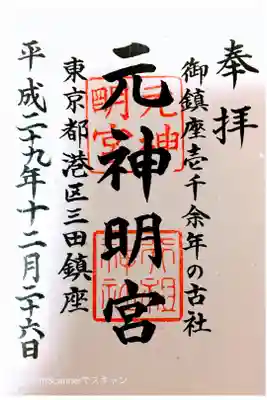 奉拝
御鎮座壱千余年の古社
元神明宮
東京都港区三田鎮座
平成二十九年十二月二十六日
元神
明宮
天祖
神社
Scannerでスキャン